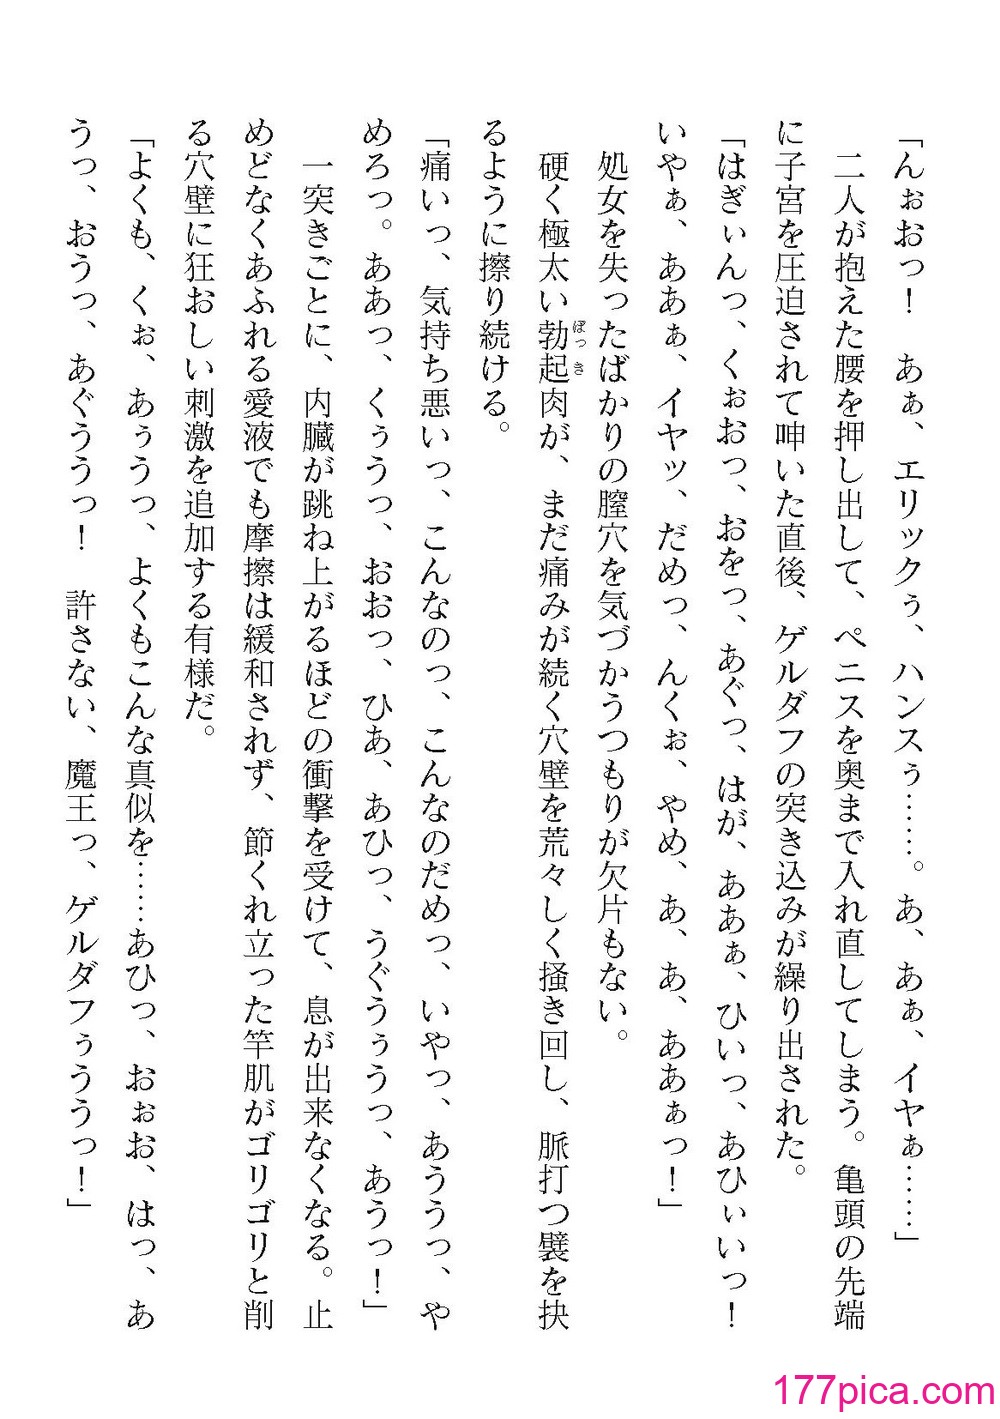 「んぉおっ！　あぁ、エリックぅ、ハンスぅ……。あ、あぁ、イヤぁ……」
　二人が抱えた腰を押し出して、ペニスを奥まで入れ直してしまう。亀頭の先端
に子宮を圧迫されて呻いた直後、ゲルダフの突き込みが繰り出された。
「はぎぃんっ、くぉおっ、おをっ、あぐっ、はが、ああぁ、ひいっ、あひぃいっ！
いやぁ、ああぁ、イヤッ、だめっ、んくぉ、やめ、あ、あ、ああぁっ！」
　処女を失ったばかりの膣穴を気づかうつもりが欠片もない。
　硬く極太い勃起肉が、まだ痛みが続く穴壁を荒々しく掻き回し、脈打つ襞を抉
ぼっき
るように擦り続ける。
「痛いっ、気持ち悪いっ、こんなのっ、こんなのだめっ、いやっ、あううっ、や
めろっ。ああっ、くぅうっ、おおっ、ひあ、あひっ、うぐうぅうっ、あうっ！」
　一突きごとに、内臓が跳ね上がるほどの衝撃を受けて、息が出来なくなる。止
めどなくあふれる愛液でも摩擦は緩和されず、節くれ立った竿肌がゴリゴリと削
る穴壁に狂おしい刺激を追加する有様だ。
「よくも、くぉ、あぅうっ、よくもこんな真似を……あひっ、おぉお、はっ、あ
うっ、おうっ、あぐううっ！　許さない、魔王っ、ゲルダフぅううっ！」
177pica.com